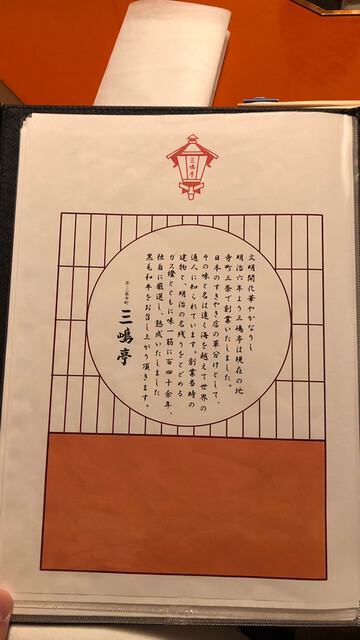 三嶋亭
文明開化華やかなりし
明治六年より三嶋亭は現在の地
寺町三条で創業いたしました。
日本のすきやき店の草分けとして、
その味と名は遠く海を越えて世界の
通人に知られています。創業当時の
建物と、明治の名残りをとどめる
ガス燈とともに味一筋に百四十余年、
独自に厳選し、熟成いたしました
黒毛和牛をお召し上がり頂きます。
三嶋亭